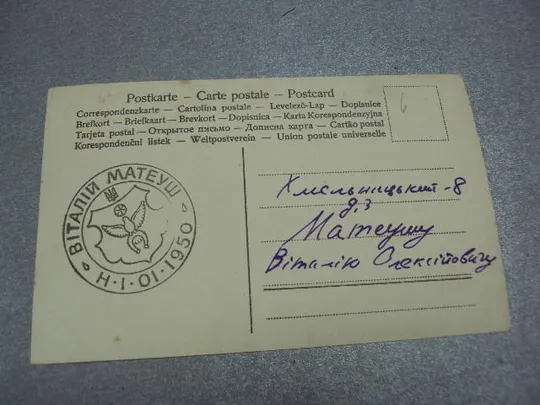 Postkarte – Carte postale – Postcard
Correspondenzkarte — Cartolina postale — Levelező-Lap — Dopisnice
Brefkort — Briefkaart — Brevkort — Dopisnica — Karta Korespondenzyjna
Tarjeta postal — Открытое письмо — Дописна карта — Cartão postal
Korespondenční lístek — Weltpostverein — Union postale universelle
ВІТАЛІЙ МАТЕУШ
Н·І·ОІ·1950
Хмельницький-8
Матеушу
Віталію Олексійовичу